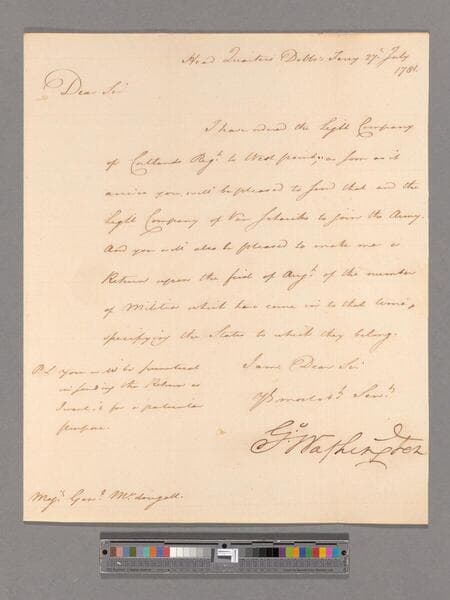 Head Quarters Dobbs Ferry 27th July
1781.
Dear Sir
I have ordered the Light Company
of Cortlands Regt. to West point, as soon as it
arrives you will be pleased to send that and the
Light Company of Van Schaicks to join the Army.
And you will also be pleased to make me a
Return upon the first of Augt. of the number
of Militia which have come in to that time,
specifying the States to which they belong.
I am Dear Sir
PS. you will be punctual
in sending the Return as
Yr. most obt. Servt.
I want it for a particular
purpose.
Go. Washington
Majr. Genl. McDougall.